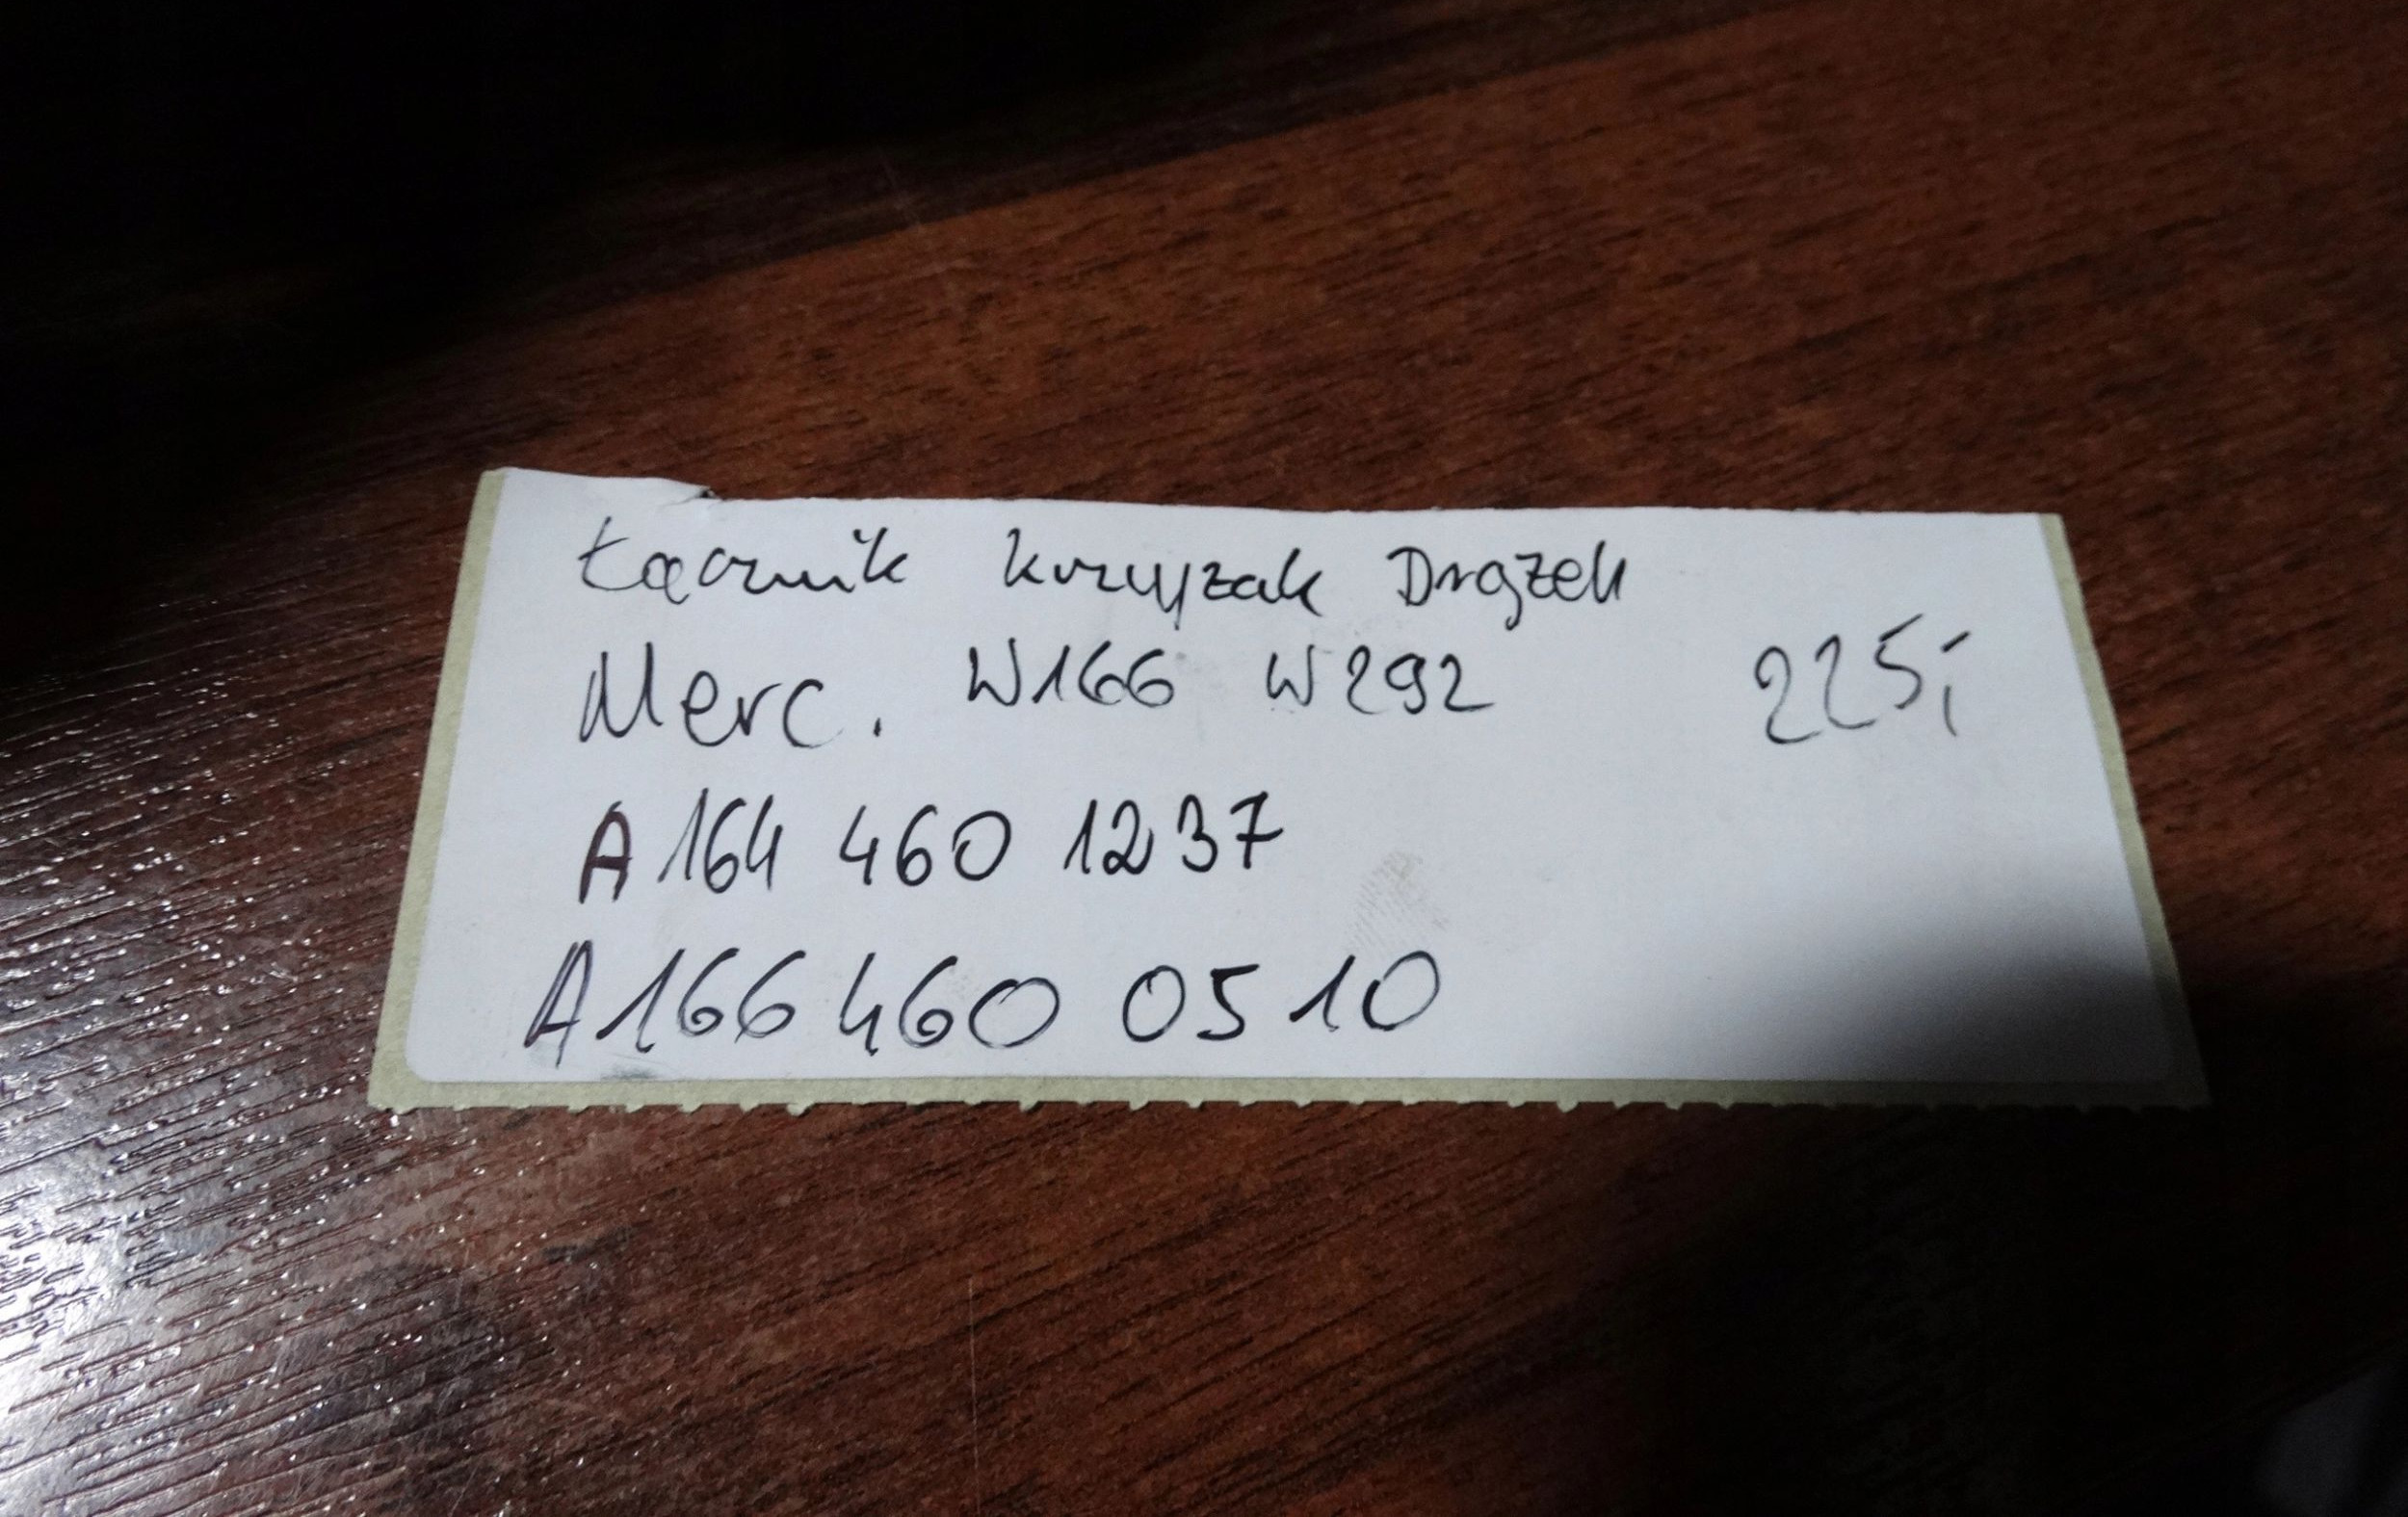 Łącznik krzyżak Drążek
Merc. W166 W292 225,-
A 164 460 1237
A166 460 0510